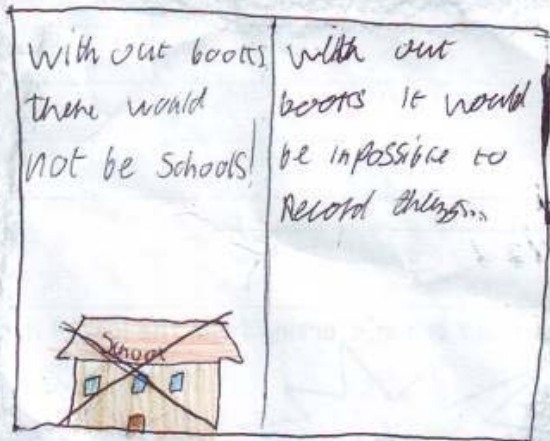 With out books
there would
not be Schools!
School
With out
books it would
be inpossible to
Record things...